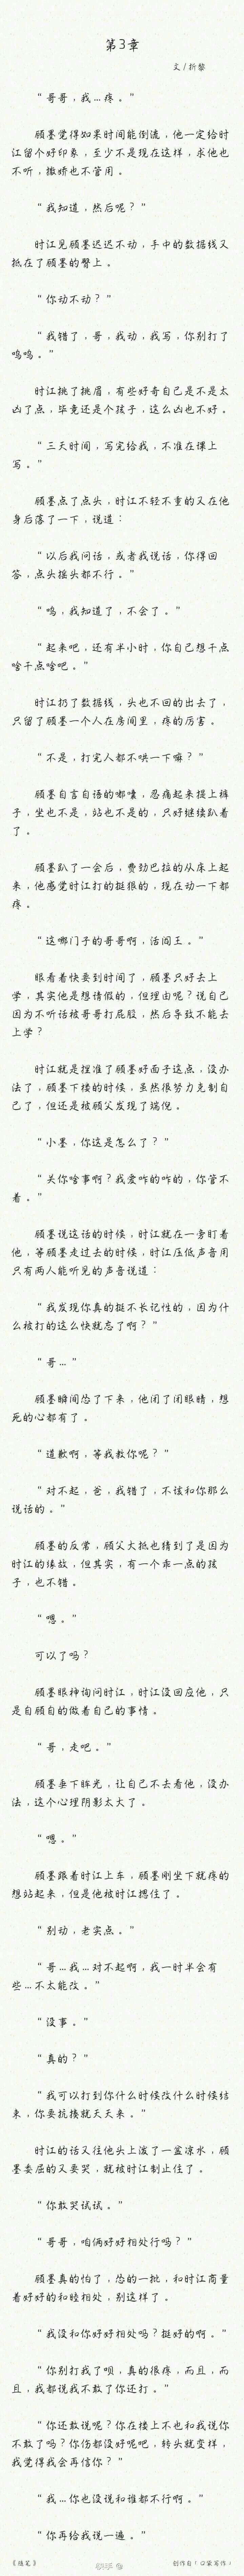 第3章
文/折黎
“哥哥，我…疼。”
顾墨觉得如果时间能倒流，他一定给时
江留个好印象，至少不是现在这样，求他也
不听，撒娇也不管用。
“我知道，然后呢？”
时江见顾墨迟迟不动，手中的数据线又
抵在了顾墨的臀上。
“你动不动？”
“我错了，哥，我动，我写，你别打了
呜呜。”
时江挑了挑眉，有些好奇自己是不是太
凶了点，毕竟还是个孩子，这么凶也不好。
“三天时间，写完给我，不准在课上
写。”
顾墨点了点头，时江不轻不重的又在他
身后落了一下，说道：
“以后我问话，或者我说话，你得回
答，点头摇头都不行。”
“呜，我知道了，不会了。”
“起来吧，还有半小时，你自己想干点
啥干点啥吧。”
时江扔了数据线，头也不回的出去了，
只留了顾墨一个人在房间里，疼的厉害。
“不是，打完人都不哄一下嘛？”
顾墨自言自语的嘟囔，忍痛起来提上裤
子，坐也不是，站也不是的，只好继续趴着
了。
顾墨趴了一会后，费劲巴拉的从床上起
来，他感觉时江打的挺狠的，现在动一下都
疼。
“这哪门子的哥哥啊，活阎王。”
眼看着快要到时间了，顾墨只好去上
学，其实他是想请假的，但理由呢？说自己
因为不听话被哥哥打屁股，然后导致不能去
上学？
时江就是捏准了顾墨好面子这点，没办
法了，顾墨下楼的时候，虽然很努力克制自
己了，但还是被顾父发现了端倪。
“小墨，你这是怎么了？”
“关你啥事啊？我爱咋的咋的，你管不
着。”
顾墨说这话的时候，时江就在一旁盯着
他，等顾墨走过去的时候，时江压低声音用
只有两人能听见的声音说道：
“我发现你真的挺不长记性的，因为什
么被打的这么快就忘了啊？”
“哥…”
顾墨瞬间怂了下来，他闭了闭眼睛，想
死的心都有了。
“道歉啊，等我教你呢？”
“对不起，爸，我错了，不该和你那么
说话的。”
顾墨的反常，顾父大抵也猜到了是因为
时江的缘故，但其实，有一个乖一点的孩
子，也不错。
“嗯。”
可以了吗？
顾墨眼神询问时江，时江没回应他，只
是自顾自的做着自己的事情。
“哥，走吧。”
顾墨垂下眸光，让自己不去看他，没办
法，这个心理阴影太大了。
“嗯。”
顾墨跟着时江上车，顾墨刚坐下就疼的
想站起来，但是他被时江摁住了。
“别动，老实点。”
“哥…我…对不起啊，我一时半会有
些…不太能改。”
“没事。”
“真的？”
“我可以打到你什么时候改什么时候结
束，你要抗揍就天天来。”
时江的话又往他头上泼了一盆凉水，顾
墨委屈的又要哭，就被时江制止住了。
“你敢哭试试。”
“哥哥，咱俩好好相处行吗？”
顾墨真的怕了，怂的一批，和时江商量
着好好的和睦相处，别这样了。
“我没和你好好相处吗？挺好的啊。”
“你别打我了呗，真的很疼，而且，而
且，我都说我不敢了你还打。”
“你还敢说呢？你在楼上不也和我说你
不敢了吗？你伤都没好呢吧，转头就变样，
我觉得我会再信你？”
“我…你也没说和谁都不行啊。”
“你再给我说一遍。”
《随笔》
创作自「口袋写作」